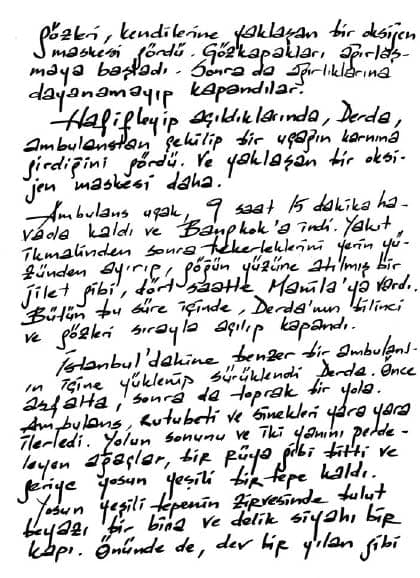 gözleri, kendilerine yaklaşan bir oksijen
maskesi gördü. Gözkapakları ağırlaş-
maya başladı. Sonra da ağırlıklarına
dayanamayıp kapandılar.
Hafifleyip açıldıklarında, Derda,
ambulanstan çekilip bir uçağın karnına
girdiğini gördü. Ve yaklaşan bir oksi-
jen maskesi daha.
Ambulans uçak, 9 saat 15 dakika ha-
vada kaldı ve Bangkok'a indi. Yakıt
ikmalinden sonra tekerleklerini yerin yü-
zünden ayırıp, göğün yüzüne atılmış bir
jilet gibi, dört saatte Manila'ya vardı.
Bütün bu süre içinde, Derda'nın bilinci
ve gözleri sırayla açılıp kapandı.
İstanbul'dakine benzer bir ambulans-
ın içine yüklenip sürüklendi Derda. Önce
asfalta, sonra da toprak bir yola.
Ambulans, rutubeti ve sinekleri yara yara
ilerledi. Yolun sonunu ve iki yanını perde-
leyen ağaçlar, bir rüya gibi bitti ve
geriye yosun yeşili bir tepe kaldı.
Yosun yeşili tepenin zirvesinde bulut
beyazı bir bina ve delik siyahı bir
kapı. Önünde de, dev bir yılan gibi